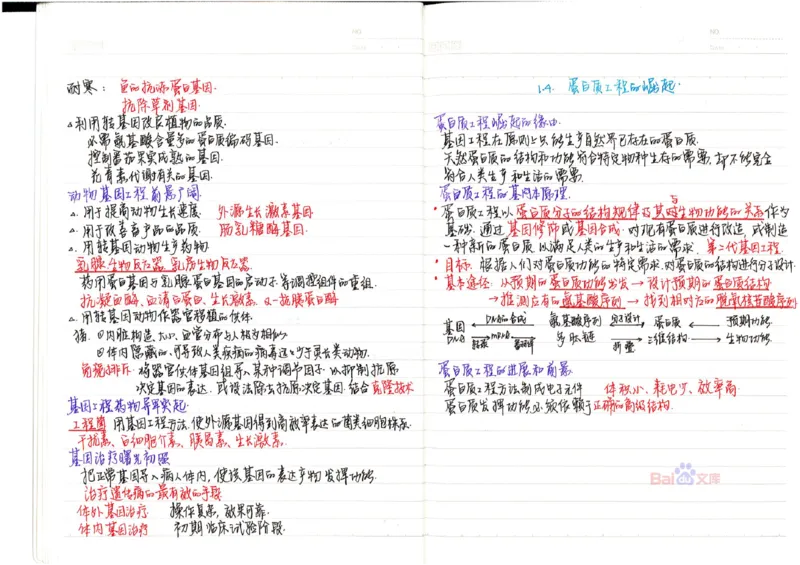 耐寒： 鱼的抗冻蛋白基因.
抗除草剂基因.
△利用转基因改良植物的品质.
必需氨基酸含量多的蛋白质编码基因.
控制番茄果实成熟的基因.
花青素代谢有关的基因.
动物基因工程前景广阔
△. 用于提高动物生长速度. 外源生长激素基因
△. 用于改善畜产品的品质. 肠乳糖酶基因.
△. 用转基因动物生产药物.
乳腺生物反应器 乳房生物反应器.
药用蛋白基因与乳腺蛋白基因的启动子等调控组件的重组.
抗凝血酶、血清白蛋白、生长激素、α-抗胰蛋白酶
△. 用转基因动物作器官移植的供体.
猪. ①内脏构造、大小、血管分布与人极为相似
②体内隐藏的、可导致人类疾病的病毒远少于灵长类动物.
免疫排斥. 将器官供体基因组导入某种调节因子. 以抑制抗原
决定基因的表达. 或设法除去抗原决定基因. 结合克隆技术
基因工程药物异军突起.
工程菌 用基因工程方法, 使外源基因得到高效率表达的菌类细胞株系.
干扰素、白细胞介素、胰岛素、生长激素.
基因治疗曙光初照
把正常基因导入病人体内, 使该基因的表达产物发挥功能.
治疗遗传病的最有效的手段
体外基因治疗 操作复杂, 效果可靠.
体内基因治疗 初期临床试验阶段.
NO.
Date
NO.
Date
1.4. 蛋白质工程的崛起.
蛋白质工程崛起的缘由.
基因工程在原则上只能生产自然界已存在的蛋白质.
天然蛋白质的结构和功能符合特定物种生存的需要, 却不能完全
符合人类生产和生活的需要.
蛋白质工程的基本原理.
蛋白质工程以蛋白质分子的结构规律及其与生物功能的关系作为
基础. 通过基因修饰或基因合成. 对现有蛋白质进行改造, 或制造
一种新的蛋白质, 以满足人类的生产和生活的需求. 第二代基因工程.
目标. 根据人们对蛋白质功能的特定需求, 对蛋白质的结构进行分子设计.
基本途径. 从预期的蛋白质功能出发 → 设计预期的蛋白质结构
→ 推测应有的氨基酸序列 → 找到相对应的脱氧核苷酸序列
基因 DNA合成 氨基酸序列 分子设计 蛋白质 预期功能
DNA 转录 mRNA 翻译 多肽链 折叠 三维结构 → 生物功能
蛋白质工程的进展和前景.
蛋白质工程方法制成电子元件 体积小、耗电少、效率高
蛋白质发挥功能必须依赖于正确的高级结构.
Baidu文库